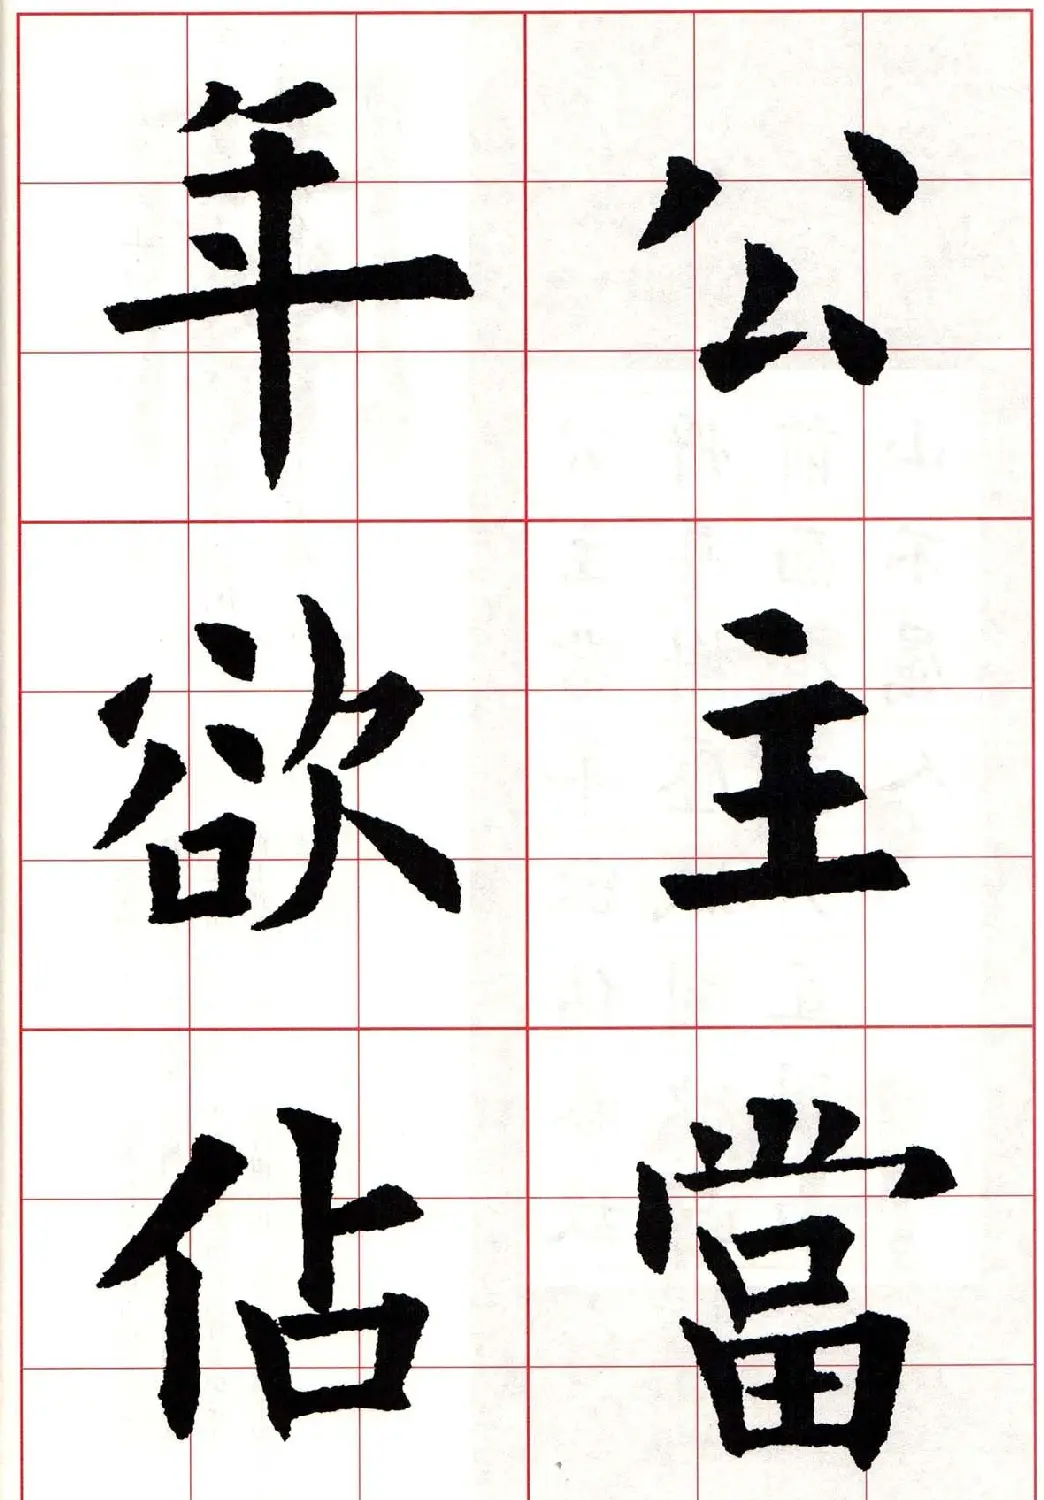 公主當
年欲佔